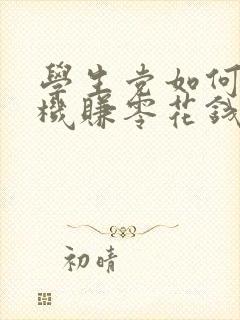 學生党如何
機賺零花錢
初晴